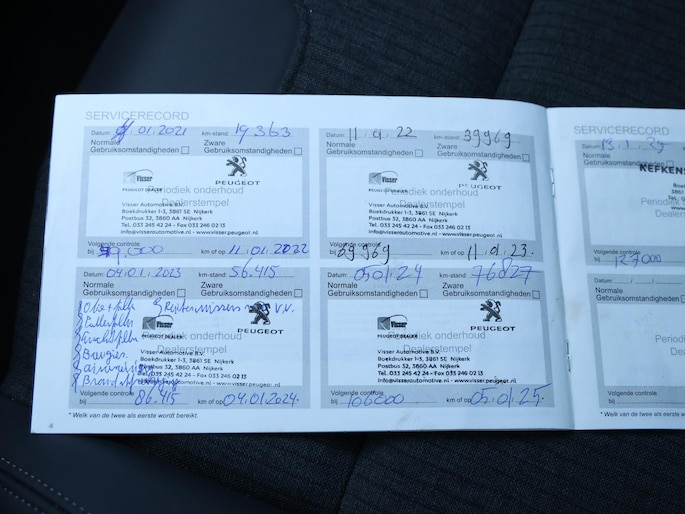 SERVICERECORD
Datum: 11.01.2021 km-stand: 19363
Normale Zware
Gebruiksomstandigheden Gebruiksomstandigheden
Visser
PEUGEOT DEALER PEUGEOT
Periodiek onderhoud
Dealerstempel
Visser Automotive B.V.
Boekdrukker 1-3, 3861 SE Nijkerk
Postbus 32, 3860 AA Nijkerk
Tel. 033 245 42 24 - Fax 033 246 02 13
info@visserautomotive.nl - www.visser.peugeot.nl
Volgende controle
bij km of op 11.01.2022
Datum: 11.01.22 km-stand: 39969
Normale Zware
Gebruiksomstandigheden Gebruiksomstandigheden
Visser
PEUGEOT DEALER PEUGEOT
Periodiek onderhoud
Dealerstempel
Visser Automotive B.V.
Boekdrukker 1-3, 3861 SE Nijkerk
Postbus 32, 3860 AA Nijkerk
Tel. 033 245 42 24 - Fax 033 246 02 13
info@visserautomotive.nl - www.visser.peugeot.nl
Volgende controle
bij km of op 11.01.23.
Datum: 04.01.2023 km-stand: 56.415
Normale Zware
Gebruiksomstandigheden Gebruiksomstandigheden
Ruitenwissers V.V.
Visser
PEUGEOT DEALER PEUGEOT
Periodiek onderhoud
Dealerstempel
Bougies.
Visser Automotive B.V.
Boekdrukker 1-3, 3861 SE Nijkerk
Postbus 32, 3860 AA Nijkerk
Tel. 033 245 42 24 - Fax 033 246 02 13
www.visser.peugeot.nl
Volgende controle
bij 86.415 km of op 04.01.2024.
Datum: 05.01.24 km-stand: 76827
Normale Zware
Gebruiksomstandigheden Gebruiksomstandigheden
Visser
PEUGEOT DEALER PEUGEOT
Periodiek onderhoud
Dealerstempel
Visser Automotive B.V.
Boekdrukker 1-3, 3861 SE Nijkerk
Postbus 32, 3860 AA Nijkerk
Tel. 033 245 42 24 - Fax 033 246 02 13
info@visserautomotive.nl - www.visser.peugeot.nl
Volgende controle
bij 106000 km of op 05.01.25.
* Welk van de twee als eerste wordt bereikt.
4
SERVICERECORD
Datum:
Normale
Gebruiksomstandigheden
NEFKENS
Volgende controle
bij 127000
Datum:
Normale
Gebruiksomstandigheden
Volgende controle
bij
* Welk van de twee als